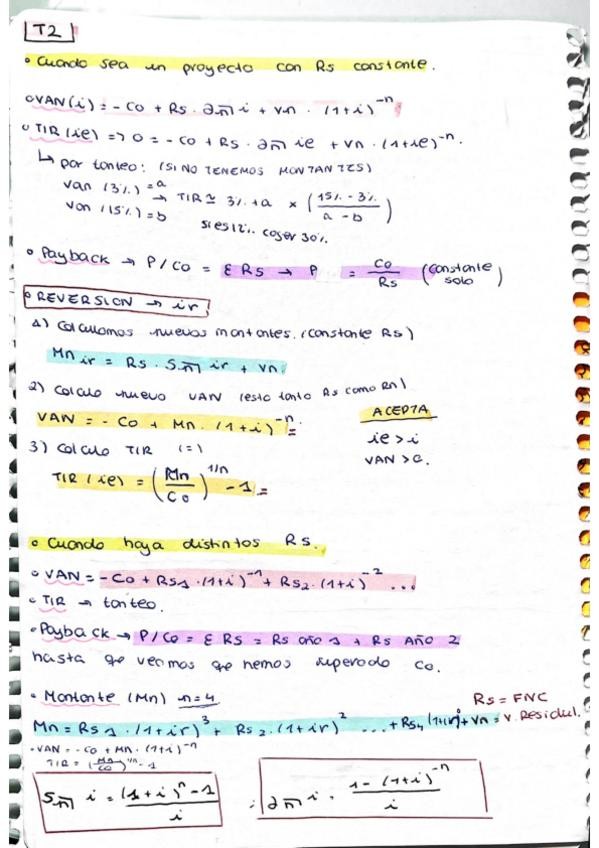 T2
• Cuando sea un proyecto con Rs constante.
• VAN(i) = - Co + Rs · a n̅ i + Vn · (1+i)^-n
• TIR (ie) => 0 = - Co + Rs · a n̅ ie + Vn · (1+ie)^-n.
↳ por tanteo: (SI NO TENEMOS MONTANTES)
Van (3%) = a
→ TIR ≈ 3% + a × (15% - 3% / a - b)
Van (15%) = b
si es 12% coger 30%
• Payback → P/Co = Σ Rs → P = Co / Rs (constante solo)
• REVERSION → ir
1) Calculamos nuevos montantes. (constante Rs)
Mn ir = Rs · S n̅ ir + Vn.
2) Calculo nuevo VAN (esto tanto Rs como Rn)
VAN = - Co + Mn · (1+i)^-n =
ACEPTA
ie > i
VAN > 0.
3) Calculo TIR (=)
TIR (ie) = (Mn / Co)^1/n - 1 =
• Cuando haya distintos Rs.
• VAN = - Co + Rs1 · (1+i)^-1 + Rs2 · (1+i)^-2 ...
• TIR → tanteo.
• Payback → P/Co = Σ RS = Rs año 1 + Rs AÑO 2
hasta qe veamos qe hemos superado Co.
• Montante (Mn) n=4
Rs = FNC
Mn = Rs1 · (1+ir)^3 + Rs2 · (1+ir)^2 ... + Rs4 (1+ir)^0 + Vn = V. Residual.
· VAN = - Co + Mn · (1+i)^-n
TIR = (Mn / Co)^1/n - 1
S n̅ i = (1+i)^n - 1 / i
; a n̅ i = 1 - (1+i)^-n / i